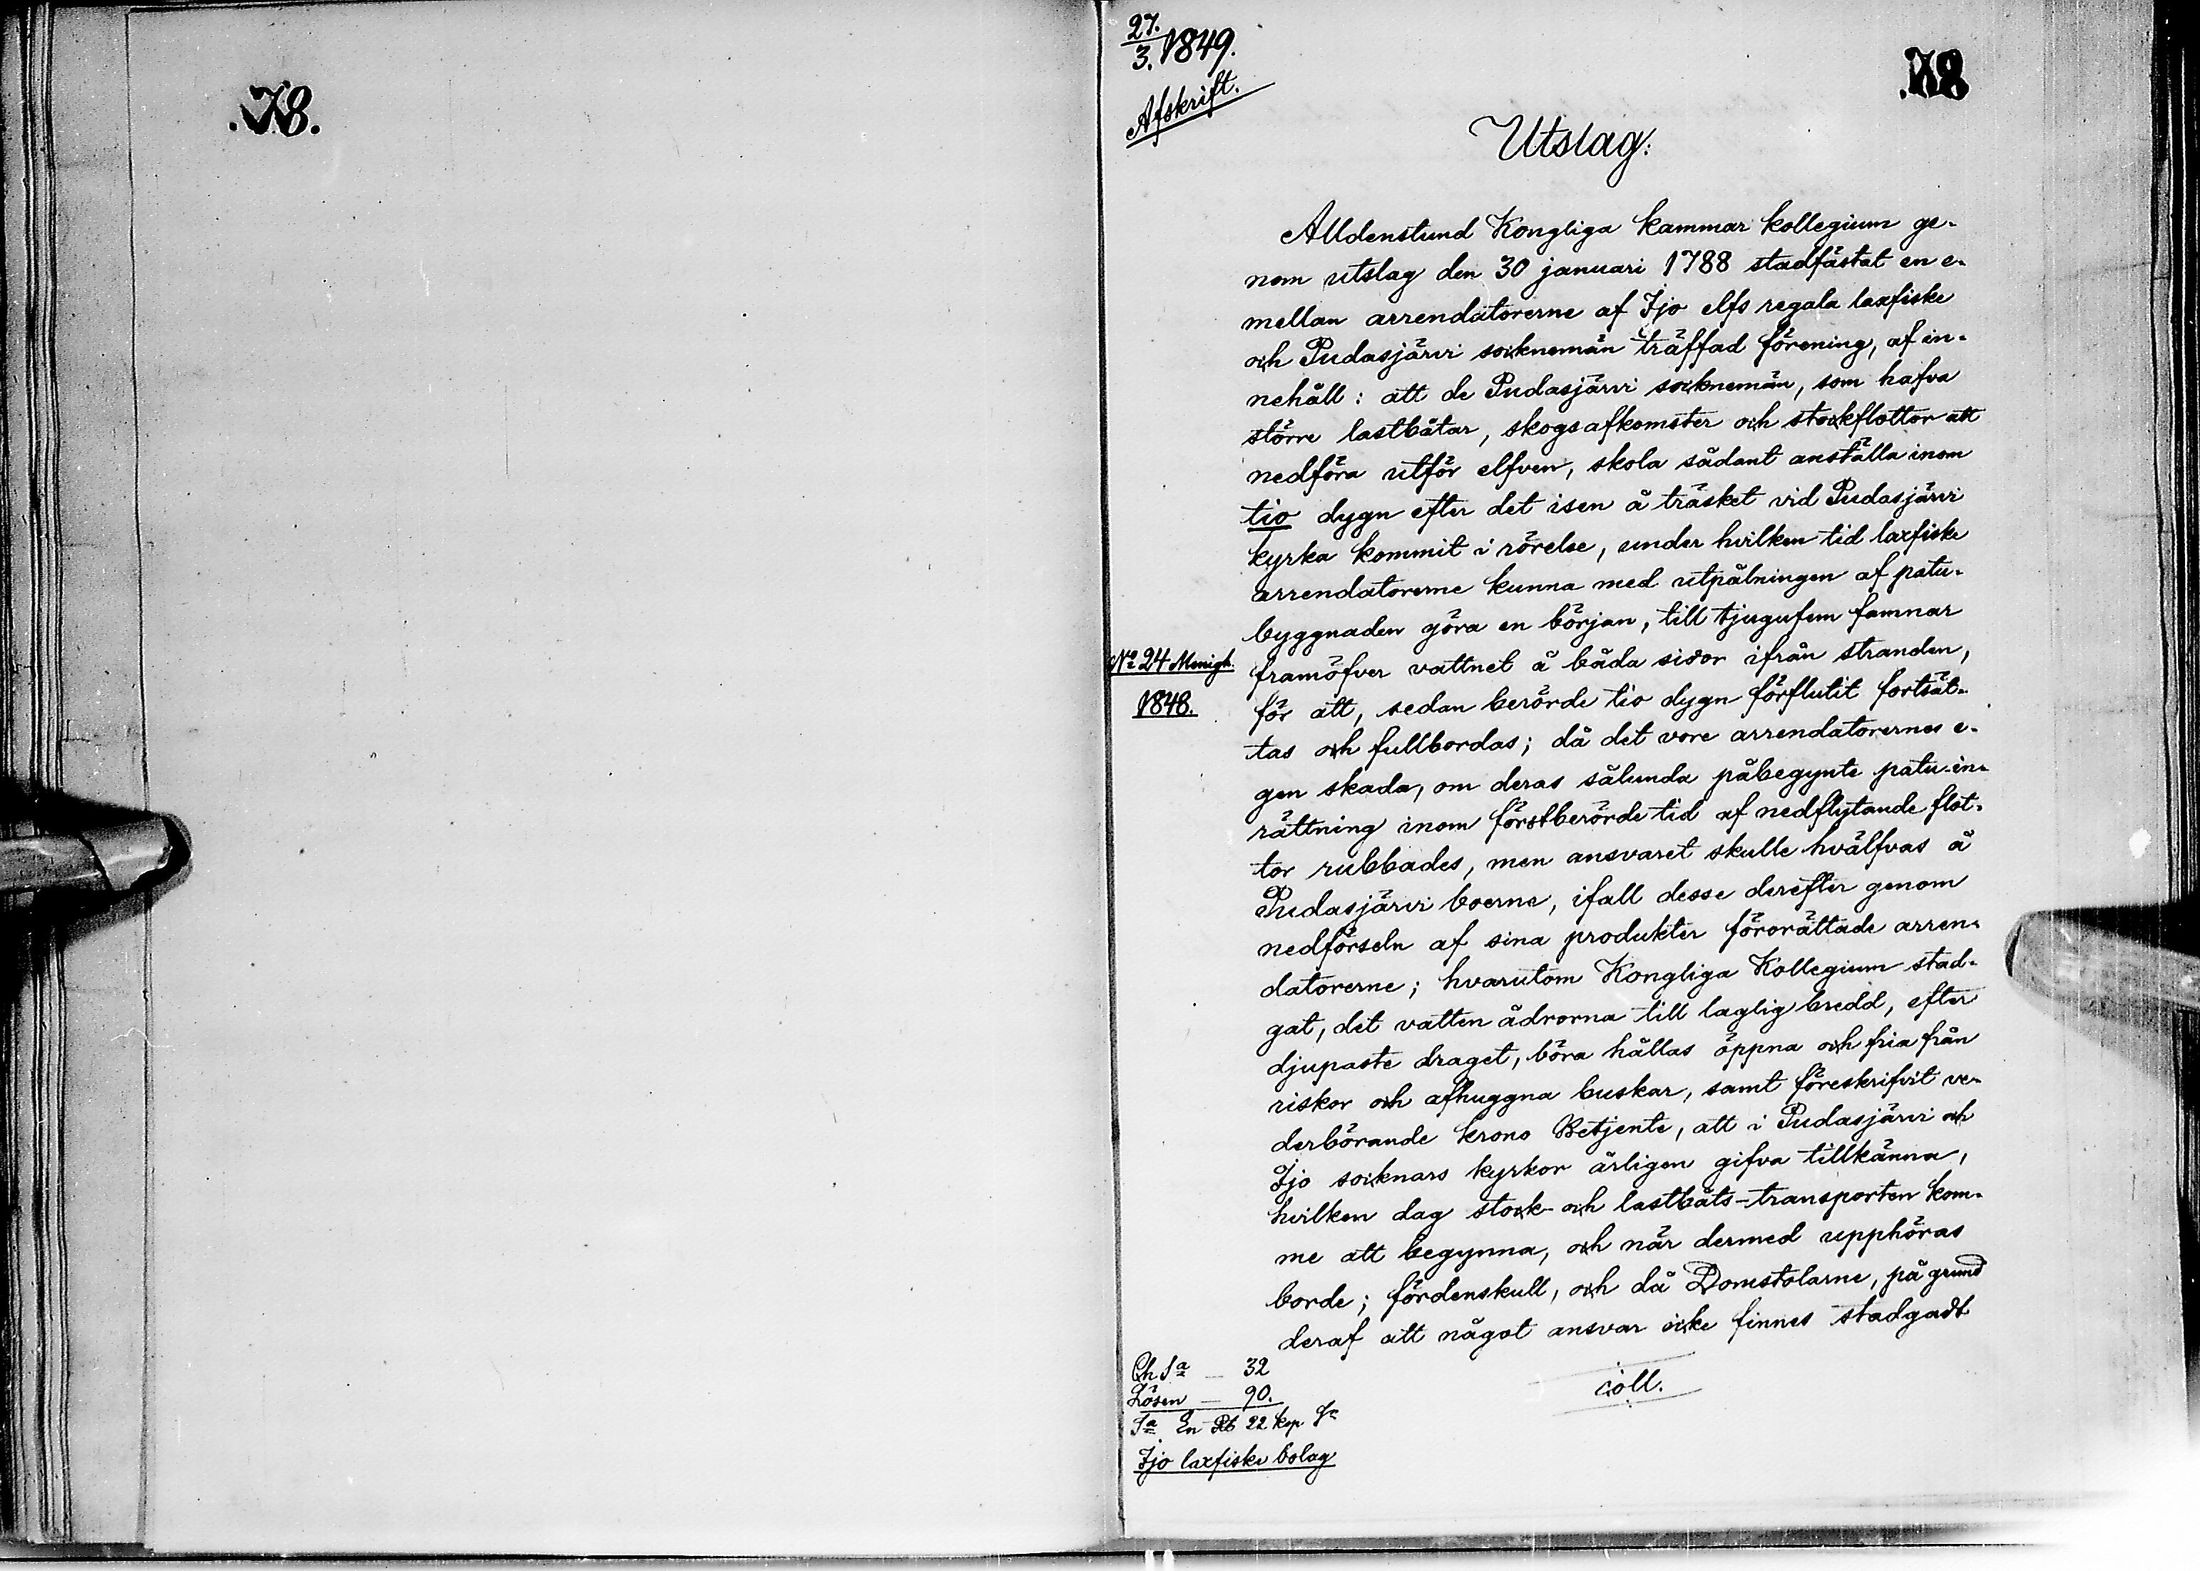 .78.
27./3. 1849.
Afskrift.
.78
Utslag:
Alldenstund Kongliga kammar kollegium ge-
nom utslag den 30 januari 1788 stadfästat en e-
mellan arrendatorerne af Ijo elfs regala laxfiske
och Pudasjärvi socknemän träffad förening, af in-
nehåll: att de Pudasjärvi socknemän, som hafva
större lastbåtar, skogsafkomster och stockflottor att
nedföra utför elfven, skola sådant anställa inom
tio dygn efter det isen å träsket vid Pudasjärvi
kyrka kommit i rörelse, under hvilken tid laxfiske
arrendatorerne kunna med utpålningen af patu-
byggnaden göra en början, till tjugufem famnar
framöfver vattnet å båda sidor ifrån stranden,
för att, sedan berörde tio dygn förflutit fortsät-
tas och fullbordas; då det vore arrendatorernes e-
gen skada, om deras sålunda påbegynte patu-in-
rättning inom förstberörde tid af nedflytande flot-
tor rubbades, men ansvaret skulle hvälfvas å
Pudasjärvi boerne, ifall desse derefter genom
nedförseln af sina produkter förorättade arren-
datorerne; hvarutom Kongliga Kollegium stad-
gat, det vatten ådrorna till laglig bredd, efter
djupaste draget, böra hållas öppna och fria från
riskor och afhuggna buskar, samt föreskrifvit ve-
derbörande krono Betjente, att i Pudasjärvi och
Ijo socknars kyrkor årligen gifva tillkänna,
hvilken dag stock- och lastbåts-transporten kom-
me att begynna, och när dermed upphöras
borde; fördenskull, och då Domstolarne, på grund
deraf att något ansvar icke finnes stadgadt
No 24 Menigh.
1848.
Ch Sa — 32
Lösen — 90.
Sa En Rb 22 kop Sr
Ijo laxfiske bolag
coll.